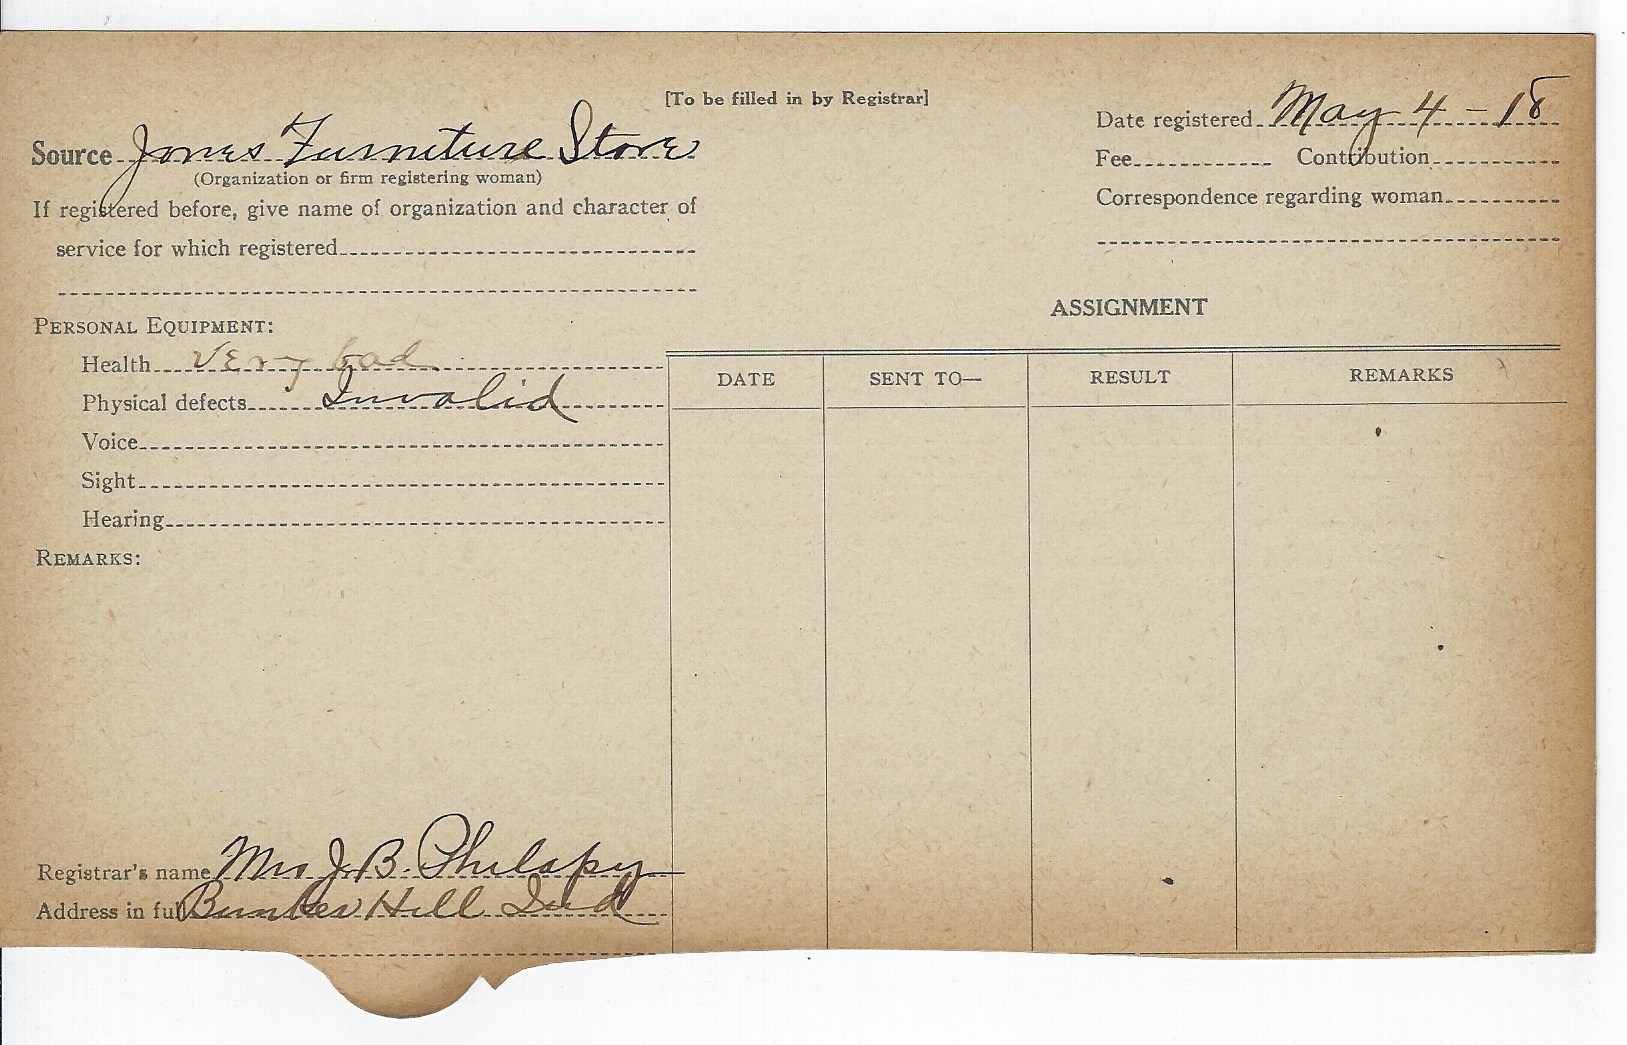 [To be filled in by Registrar]
Date registered May 4 - 18
Source Jones Furniture Store
(Organization or firm registering woman)
Fee Contribution
If registered before, give name of organization and character of
service for which registered
Correspondence regarding woman
ASSIGNMENT
PERSONAL EQUIPMENT:
Health very bad
Physical defects Invalid
Voice
Sight
Hearing
DATE SENT TO— RESULT REMARKS
REMARKS:
Registrar's name Mrs J. B. Philapy
Address in full Bunker Hill Ind